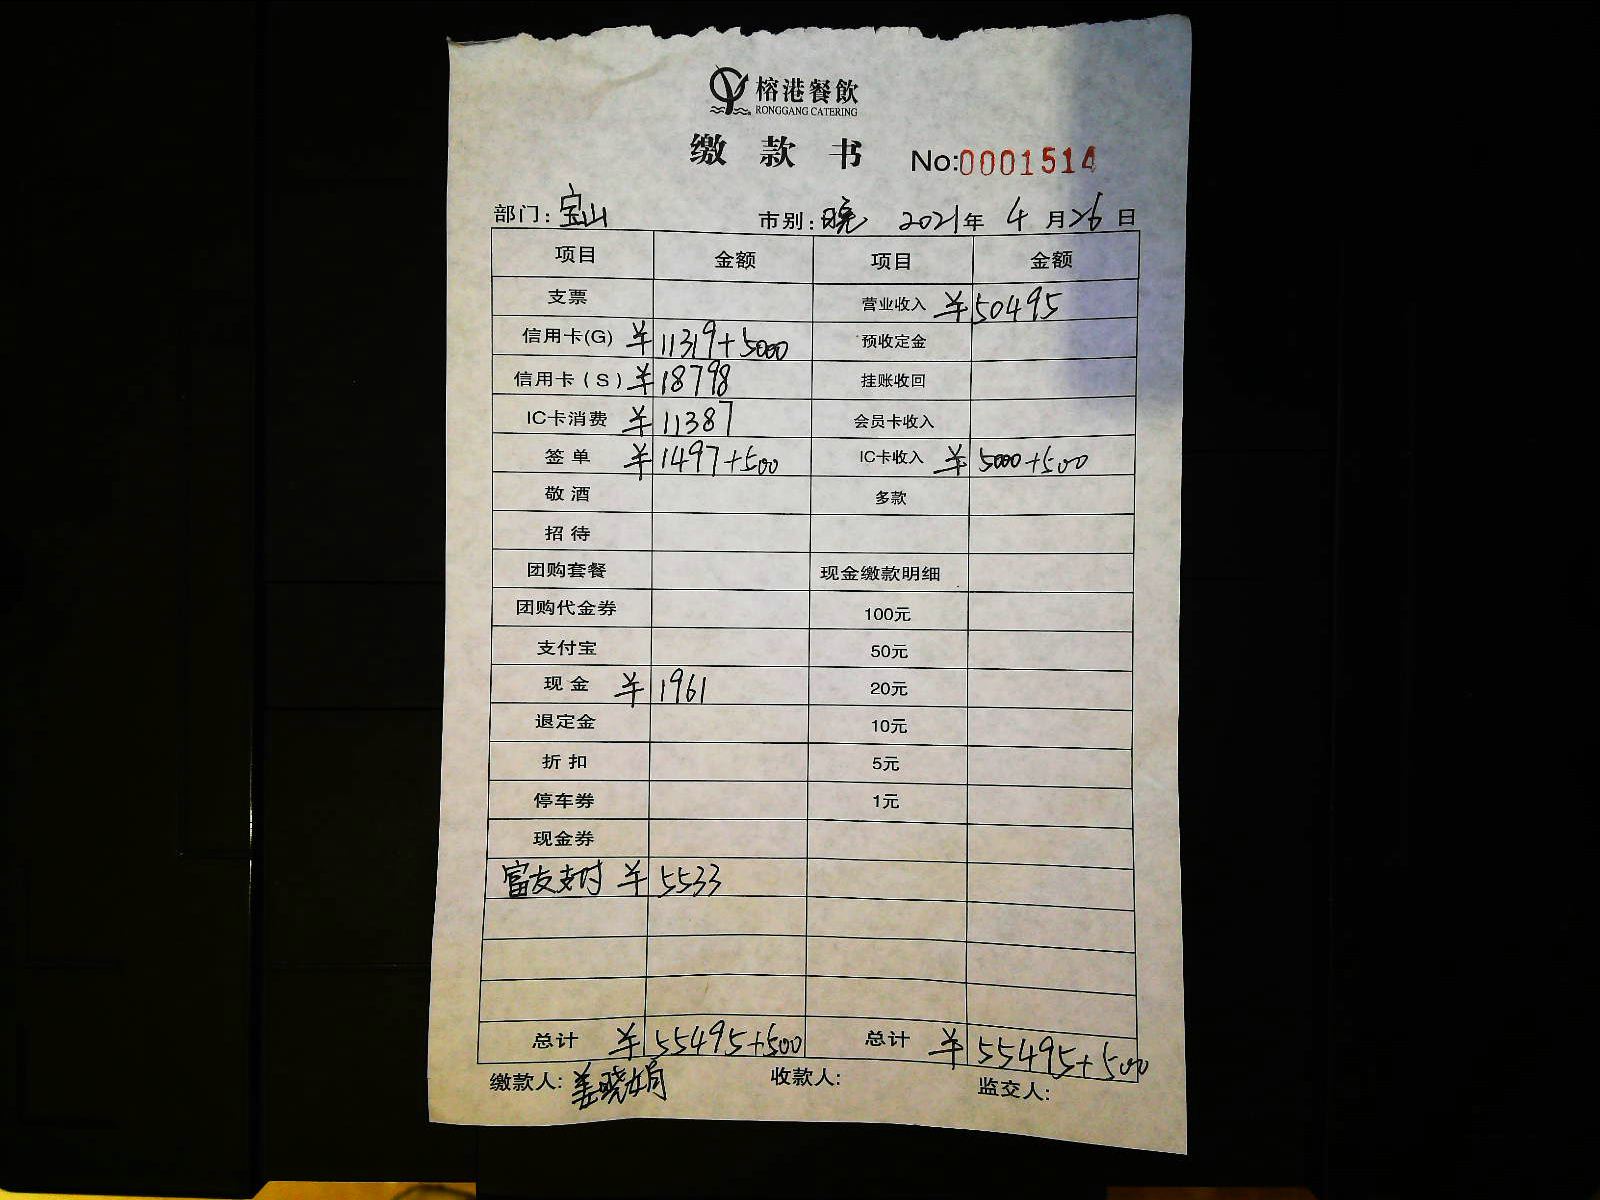 榕港餐飲
RONGGANG CATERING
缴款书 No:0001514
部门: 宝山 市别: 晚 2021年 4月26日
项目 金额 项目 金额
支票 营业收入 ¥50495
信用卡(G) ¥11319+5000 预收定金
信用卡(S) ¥18798 挂账收回
IC卡消费 ¥11387 会员卡收入
签单 ¥1497+500 IC卡收入 ¥5000+500
敬酒 多款
招待
团购套餐 现金缴款明细
团购代金券 100元
支付宝 50元
现金 ¥1961 20元
退定金 10元
折扣 5元
停车券 1元
现金券
富友支付 ¥5533
总计 ¥55495+500 总计 ¥55495+500
缴款人: 姜晓娟 收款人: 监交人: